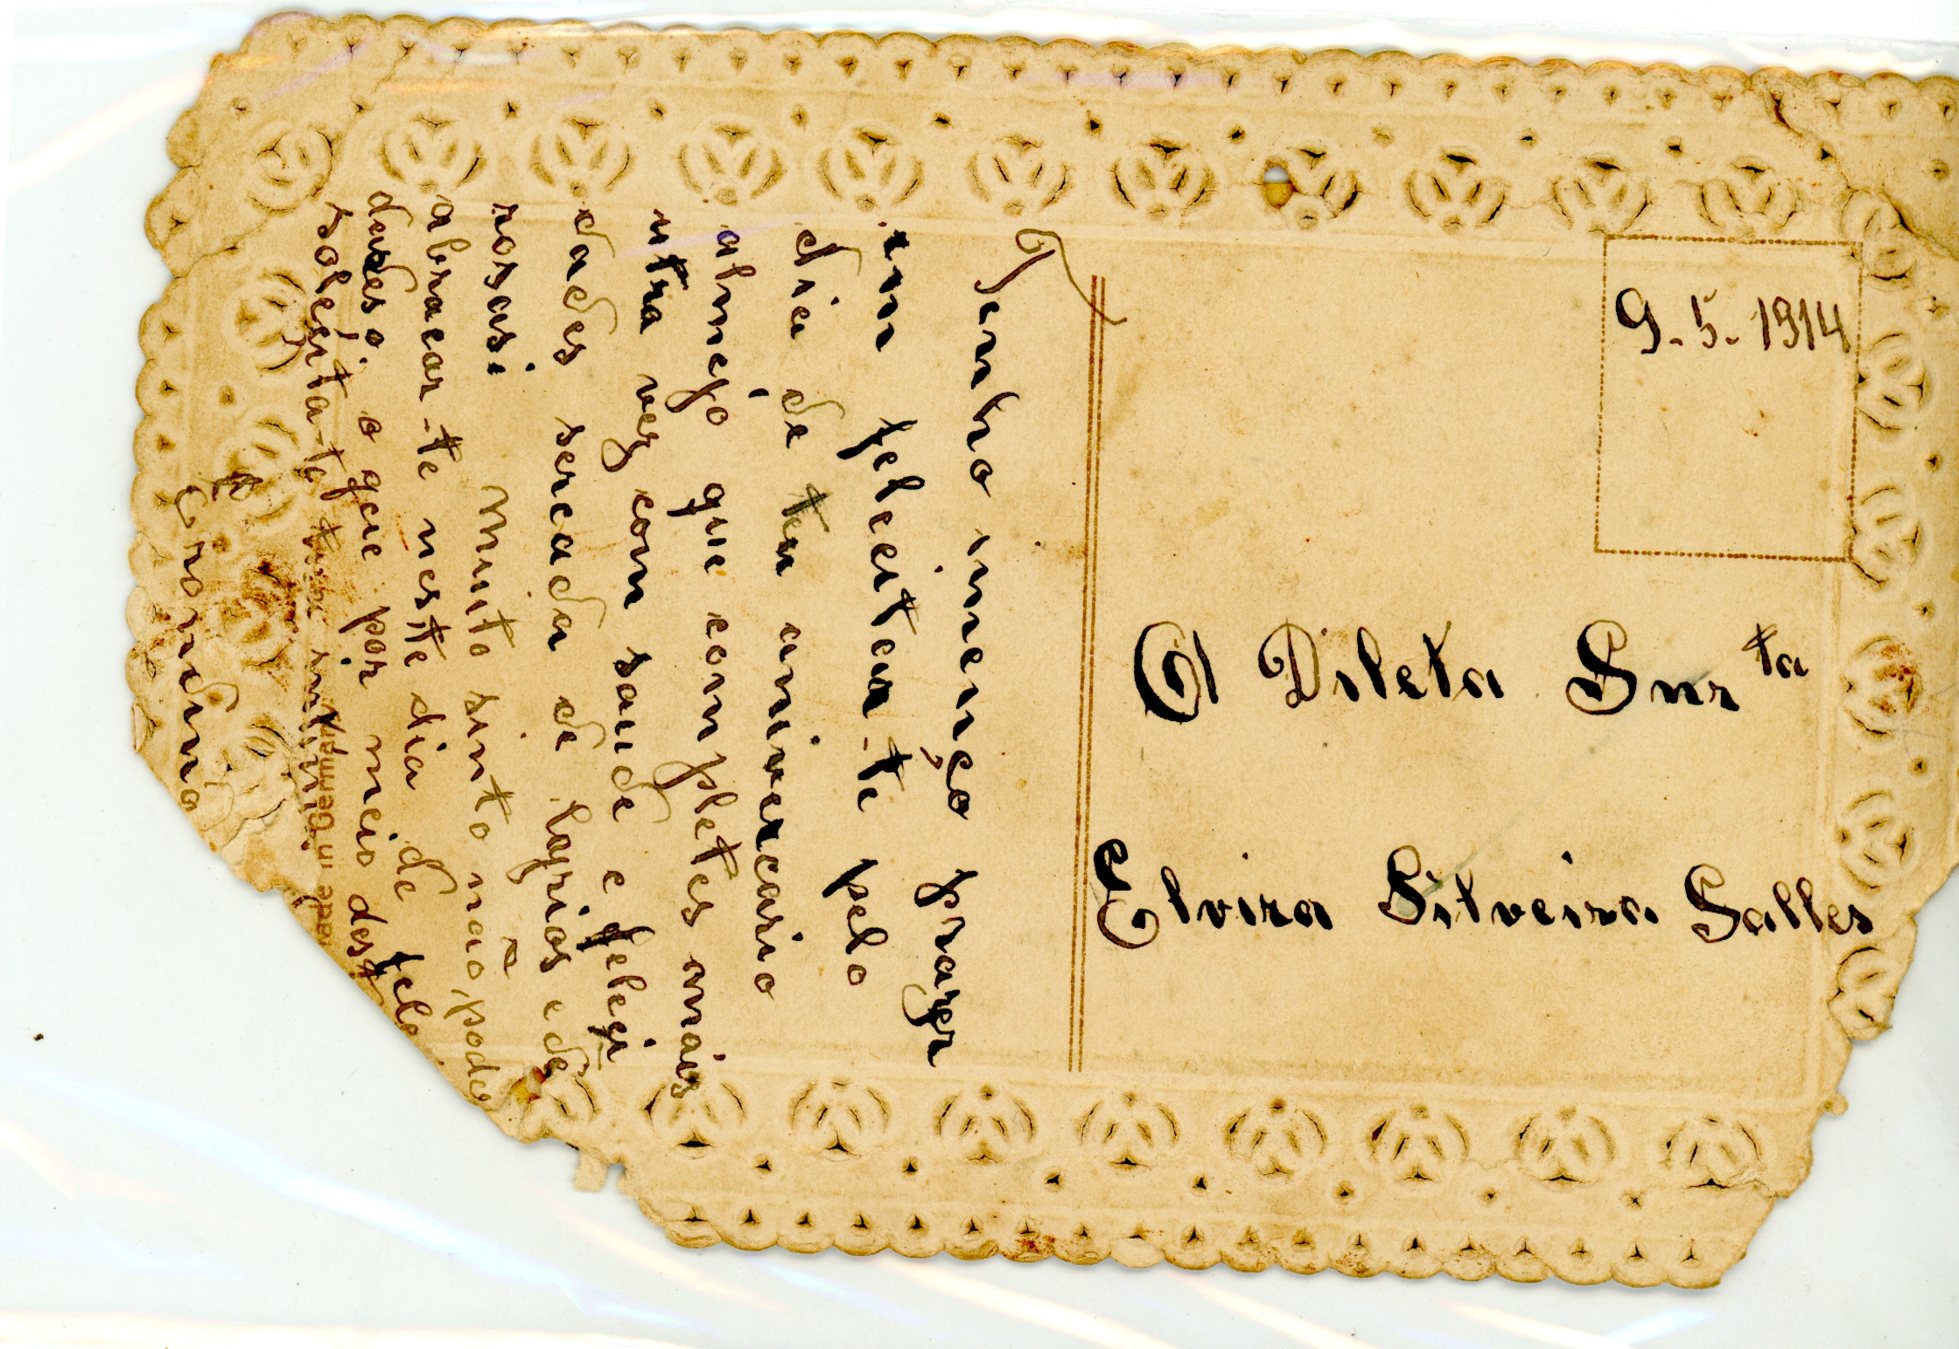 9-5-1914
A Dileta Snrta
Elvira Silveira Salles
Tenho imenço prazer
em felecitar-te pelo
dia de teu anivercario
almejo que completes mais
utra vez com saude e feleci
dades sercada de lagrios e de
rosas. Muito sinto não pode
abracar-te neste dia de fele
dades. o que por meio dest
Made in Germany